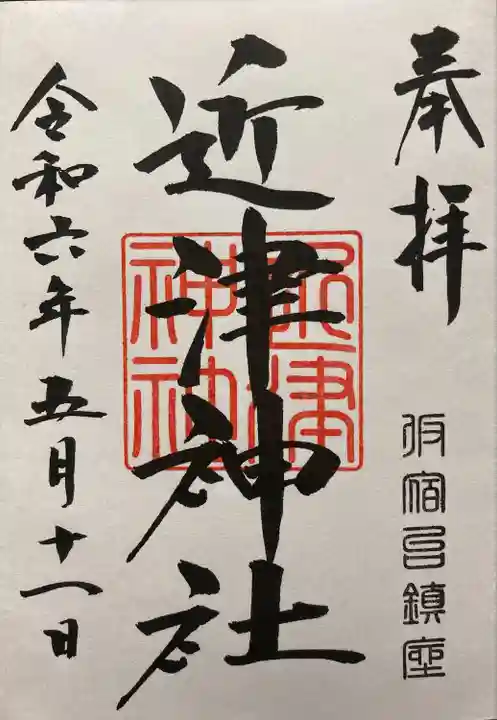 奉拝
仮宿邑鎮座
近津神社
近津
神社
令和六年五月十一日